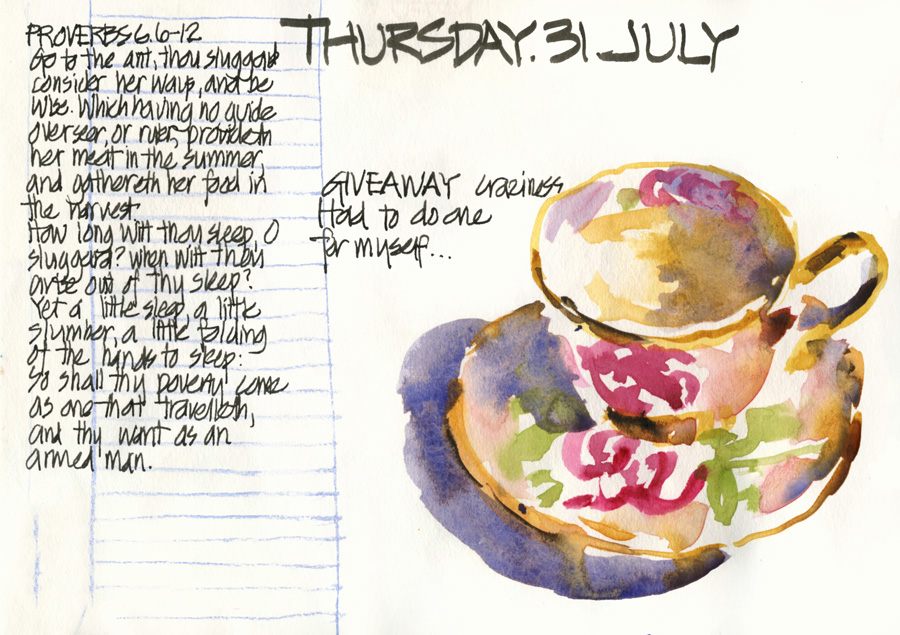 THURSDAY. 31 JULY
PROVERBS 6.6-12
Go to the ant, thou sluggard
consider her ways, and be
wise. Which having no guide
overseer, or ruler, provideth
her meat in the summer,
and gathereth her food in
the harvest.
How long wilt thou sleep, O
sluggard? when wilt thou
arise out of thy sleep?
Yet a little sleep, a little
slumber, a little folding
of the hands to sleep:
So shall thy poverty come
as one that travelleth,
and thy want as an
armed man.
GIVEAWAY craziness
Had to do one
for myself...